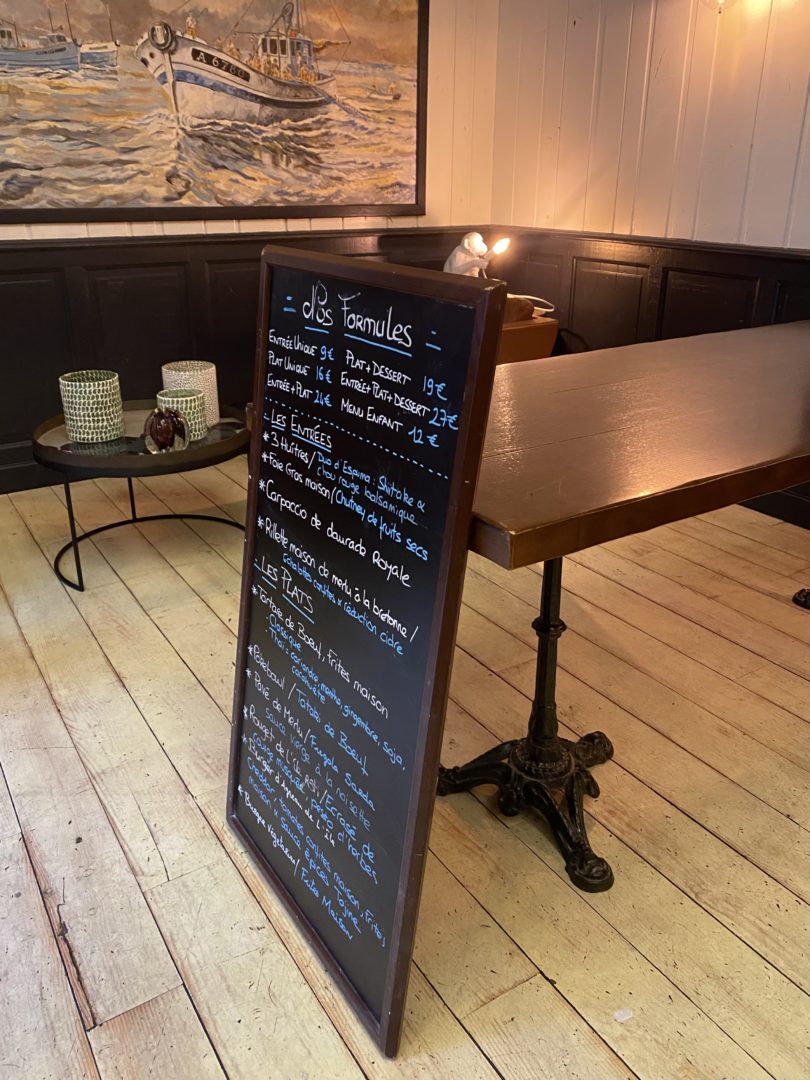 A 6760
= Nos Formules =
ENTRÉE UNIQUE 9€ PLAT + DESSERT 19€
PLAT UNIQUE 16€ ENTRÉE+PLAT+DESSERT 27€
ENTRÉE + PLAT 24€ MENU ENFANT 12€
- LES ENTRÉES
* 3 Huîtres / Duo d'Espuma : Shiitake &
chou rouge balsamique
* Foie Gras maison / Chutney de fruits secs
* Carpaccio de daurade Royale
* Rillette maison de merlu à la bretonne /
Echalottes confites & réduction cidre
- LES PLATS
* Tartare de Boeuf, Frites maison
: Classique
: Thaï : coriandre, menthe, gingembre, soja,
cacahuète
* Pokebowl / Tataki de Boeuf
* Pavé de Merlu / Fregola Sarda
sauce vierge à la noisette
* Rouget de / Ecrasé de
pesto d'herbes
* Burger d'Agneau de
cheddar, tomates confites maison, Frites
maison & sauce épices
* Burger végétarien / Frites Maison